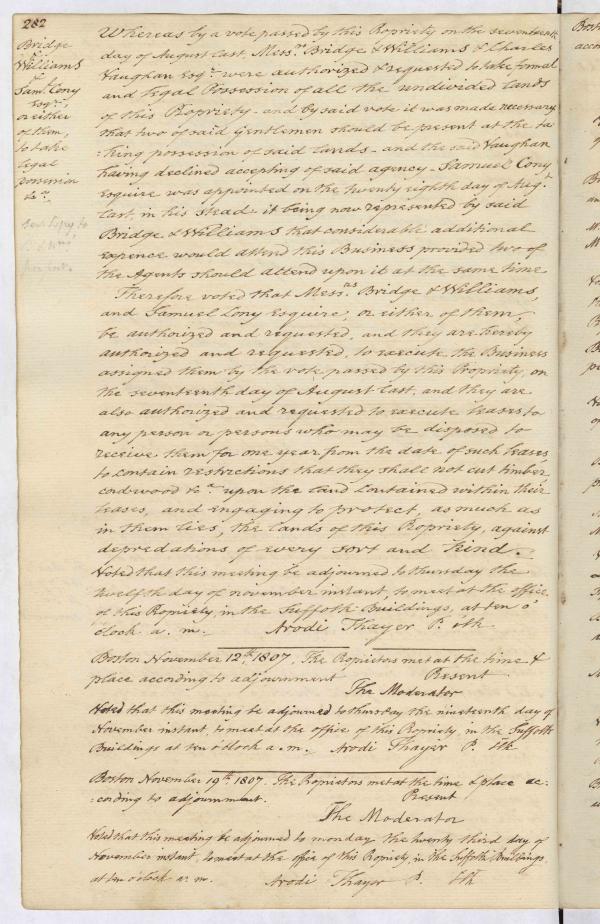 282
Bridge
&
Williams
&
Saml. Cony
Esqr.,
or either
of them,
to take
legal
possession
&c.
Whereas by a vote passed by this Propriety on the seventeenth
day of August last, Messrs. Bridge & Williams & Charles
Vaughan Esqr. were authorized & requested to take formal
and legal Possession of all the undivided lands
of this Propriety - and by said vote it was made necessary
that two of said Gentlemen should be present at the ta
:king possession of said lands - and the said Vaughan
having declined accepting of said agency - Samuel Cony
Esquire was appointed on the twenty eighth day of Augt.
last, in his stead - it being now represented by said
Bridge & Williams that considerable additional
expence would attend this Business provided two of
the Agents should attend upon it at the same time
Therefore voted that Messrs. Bridge & Williams,
and Samuel Cony Esquire, or either of them,
be authorized and requested, and they are hereby
authorized and requested, to execute the Business
assigned them by the vote passed by this Propriety, on
the seventeenth day of August last, and they are
also authorized and requested to execute leases to
any person or persons who may be disposed to
receive them for one year from the date of such leases,
to contain restrictions that they shall not cut timber,
cord wood &c. upon the land contained within their
leases, and engaging to protect, as much as
in them lies, the lands of this Propriety, against
depredations of every sort and kind.
Voted that this meeting be adjourned to thursday the
twelfth day of november instant, to meet at the office
of this Propriety, in the Suffolk Buildings, at ten o'
clock a. m. Arodi Thayer P. Clk
Boston November 12th. 1807. The Proprietors met at the time &
place according to adjournment Present
The Moderator
Voted that this meeting be adjourned to thursday the nineteenth day of
November instant, to meet at the office of this Propriety, in the Suffolk
Buildings at ten o'clock a. m. Arodi Thayer P. Clk
Boston November 19th. 1807. The Proprietors met at the time & place ac:
:cording to adjournment. Present
The Moderator
Voted that this meeting be adjourned to monday the twenty third day of
November instant, to meet at the office of this Propriety, in the Suffolk Buildings,
at ten o'clock a. m. Arodi Thayer P. Clk